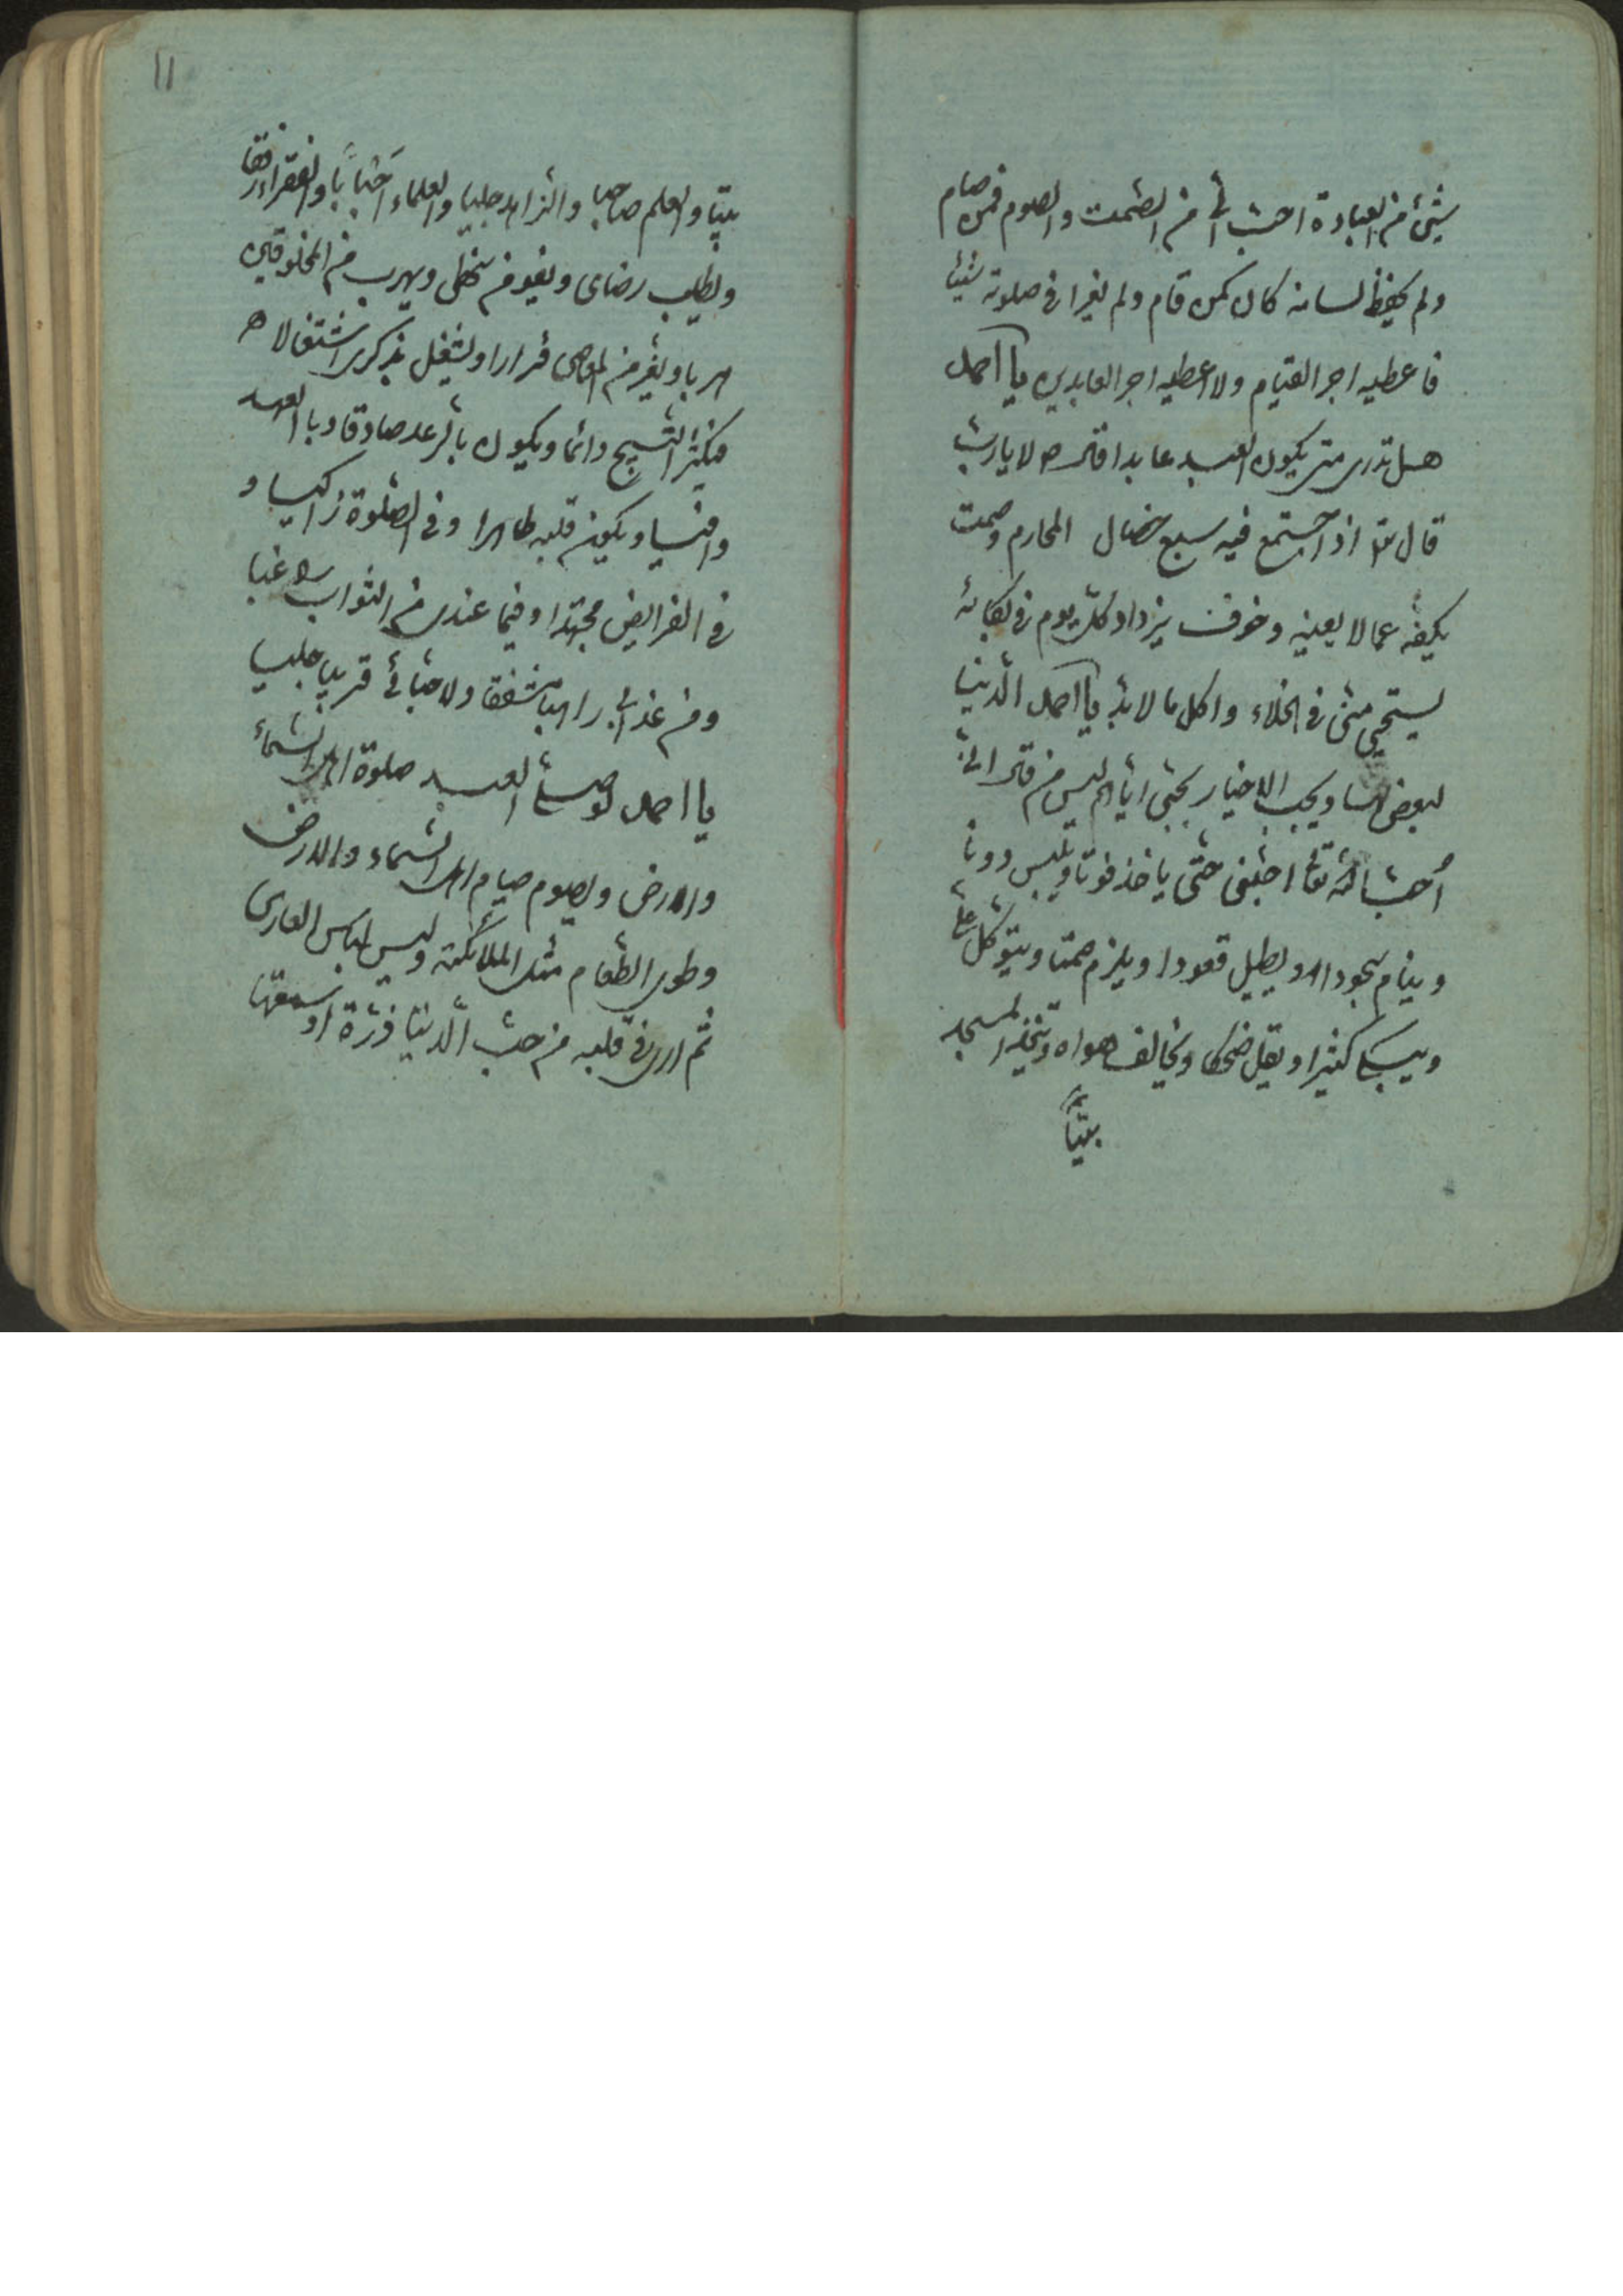 شیئ من العبادة احبّ الیّ من الصّمت والصوم فمن صام
ولم یحفظ لسانه کان کمن قام ولم یقرا فی صلوته شیئا
فاعطیه اجر القیام ولا اعطیه اجر العابدین یا احمد
هل تدری متی یکون العبد عابدا قال لا یا ربّ
قال اذا اجتمع فیه سبع خصال المحارم وصمت
یکفّه عما لا یعنیه وخوف یزداد کلّ یوم فی بکائه
یستحیی منّی فی الخلاء واکل ما لا بدّ یا احمد الدّنیا
لبعض ویحب الاخیار بحبّی ایّاهم لیس من قال انّی
اُحبّ اللّه احبّنی حتّی یاخذ قوتا ویلبس دونا
وینام سجودا ویطیل قعودا ویلزم صمتا ویتوکّل علیّ
ویبکی کثیرا ویقلّ ضحکا ویخالف هواه ویتّخذ المسجد
بیتاً
١١
بیتا والعلم صاحبا والزّاهد جلیسا والعلماء احبّاباً والفقراء رفقا
ویطلب رضای ویفرّ من سخطی ویهرب من المخلوقین
هربا ویفرّ من المعاصی فرارا ویشتغل بذکری اشتغالا
فیکثر التّسبیح دائما ویکون بالوعد صادقا وبالعهد
وافیا ویکون قلبه طاهرا وفی الصّلوة زاکیا و
فی الفرایض مجتهدا وفیما عندی من الثواب راغبا
ومن عذابی راهبا مشفقا ولاحبّائی قریبا جلیسا
یا احمد لو صلّی العبد صلوة اهل السّماء
والارض ویصوم صیام اهل السّماء والارض
وطوی الطّعام مثل الملائکته ولبس لباس العاری
ثم اری فی قلبه من حبّ الدّنیا ذرّة او سمعتها